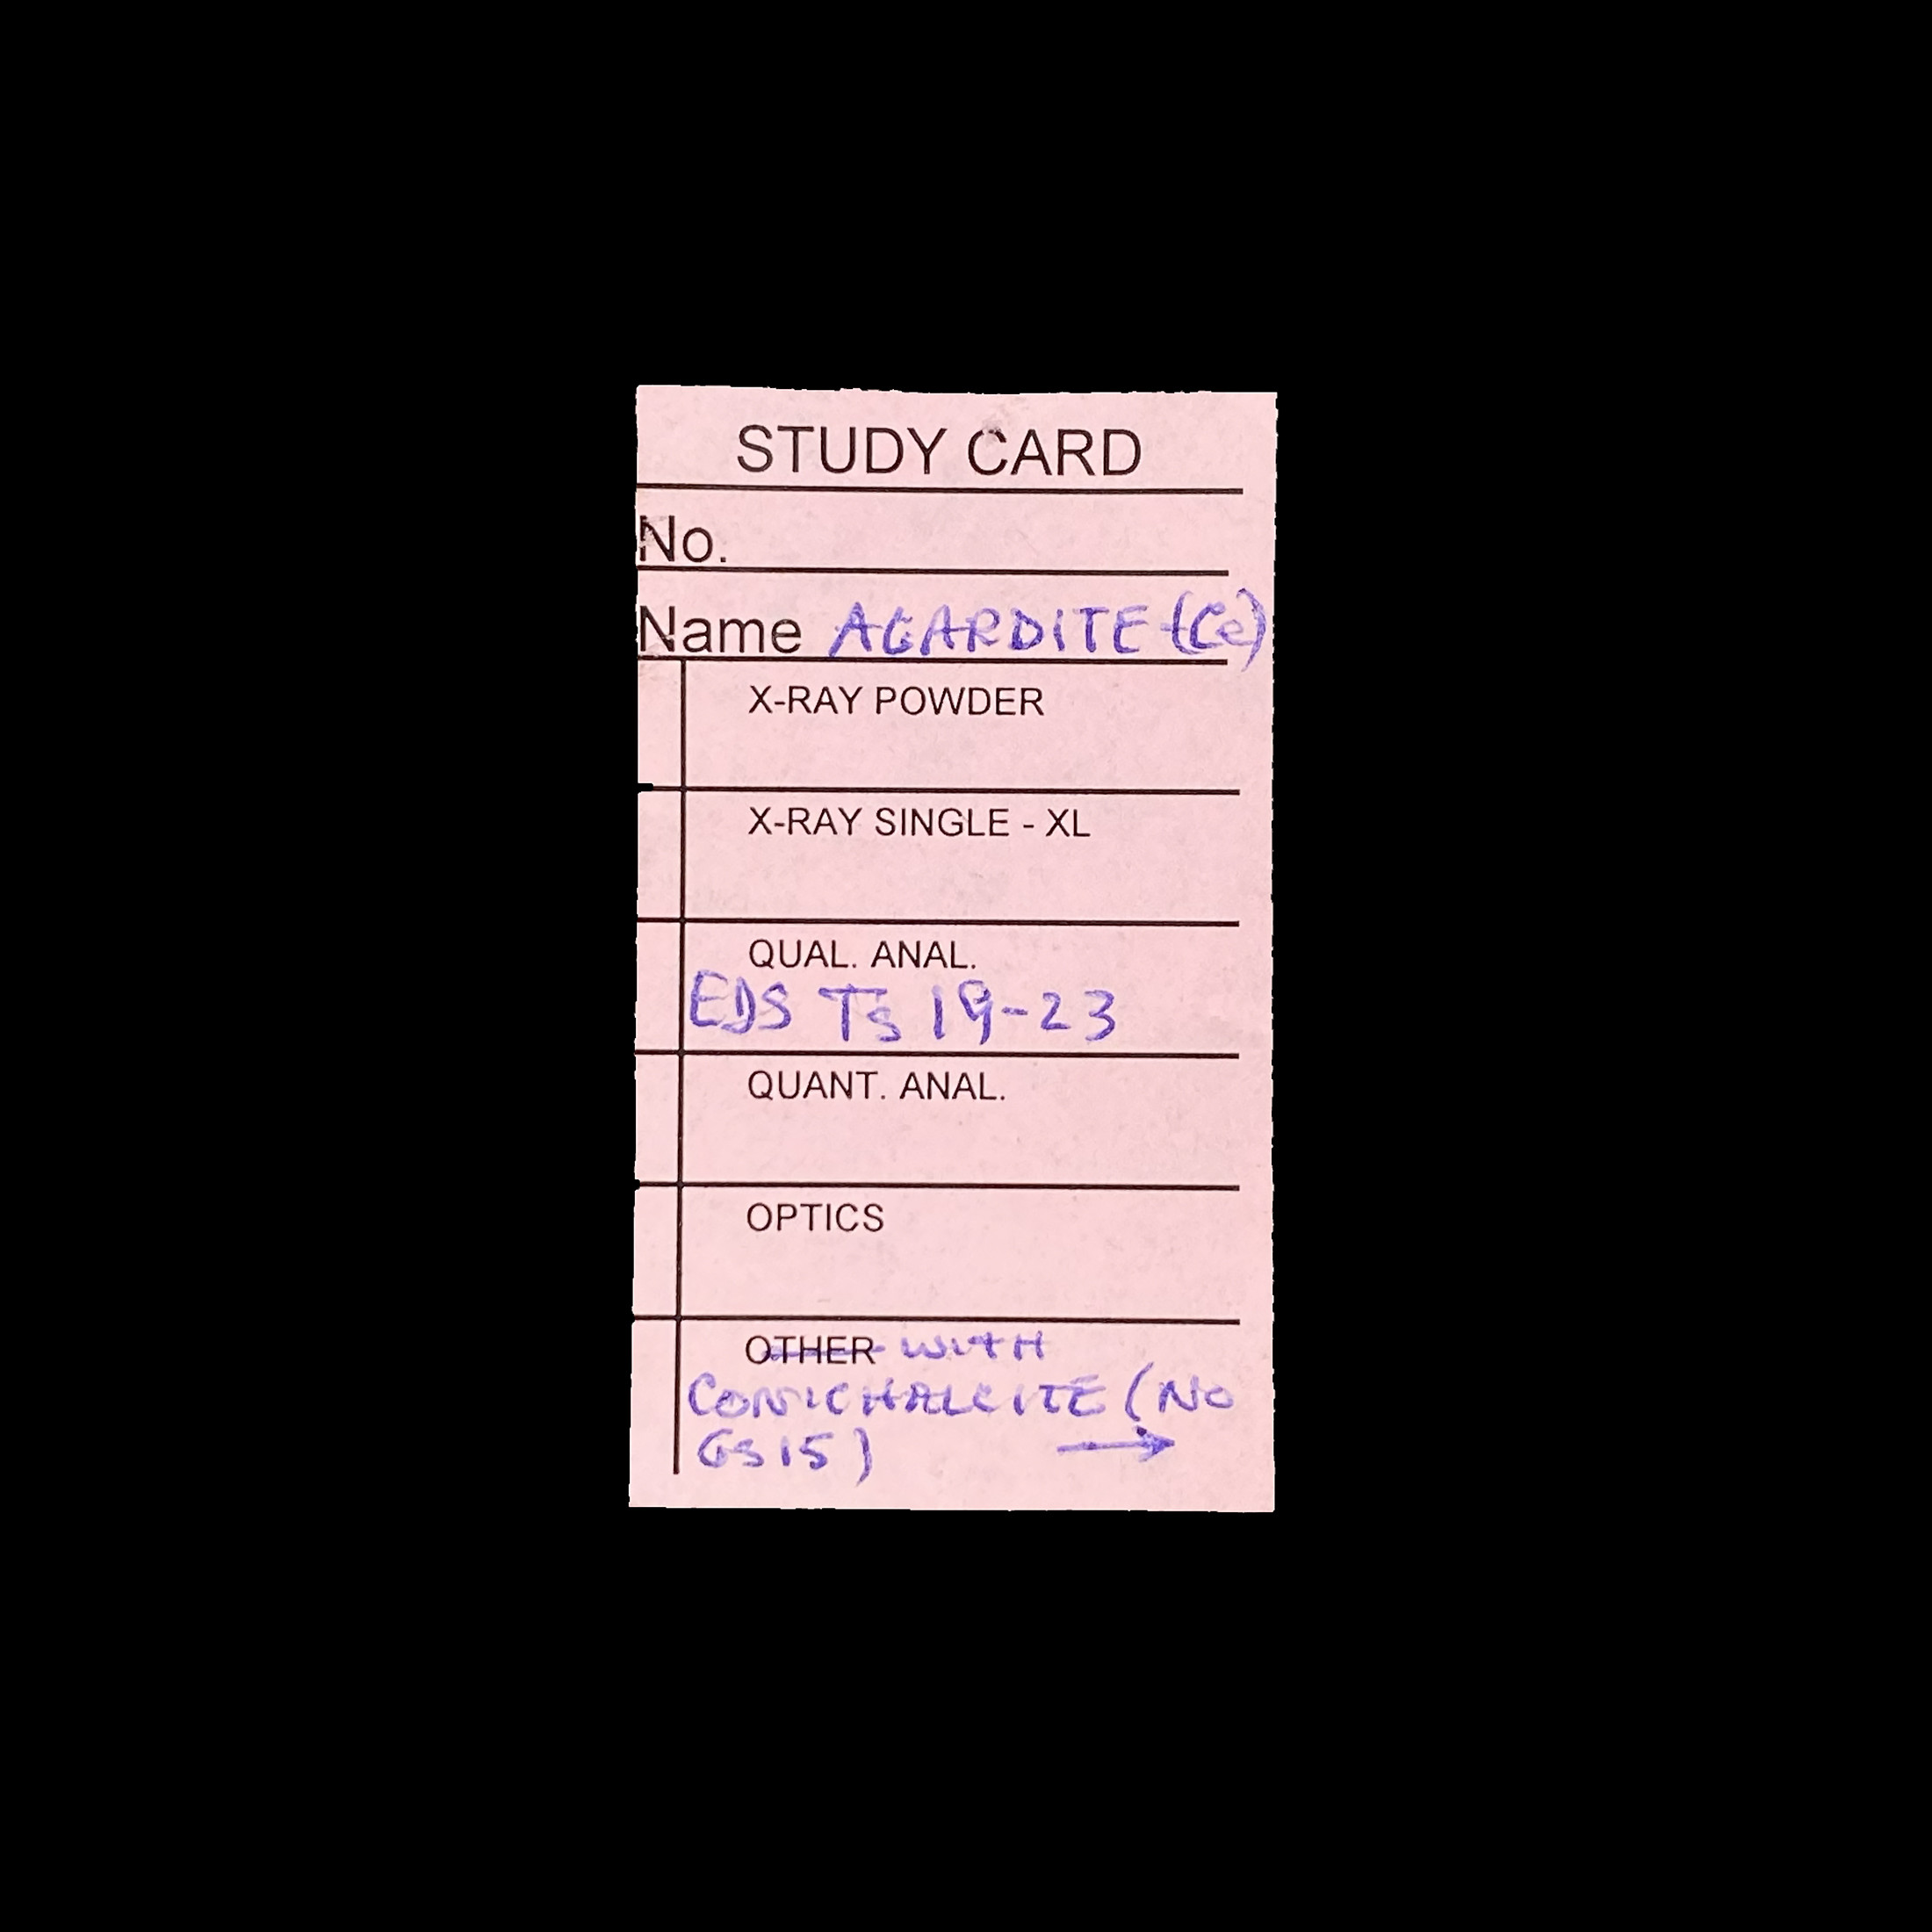 STUDY CARD
No.
Name AGARDITE-(Ce)
X-RAY POWDER
X-RAY SINGLE - XL
QUAL. ANAL.
EDS Ts 19-23
QUANT. ANAL.
OPTICS
OTHER WITH
CONICHALCITE (NO
GS15)